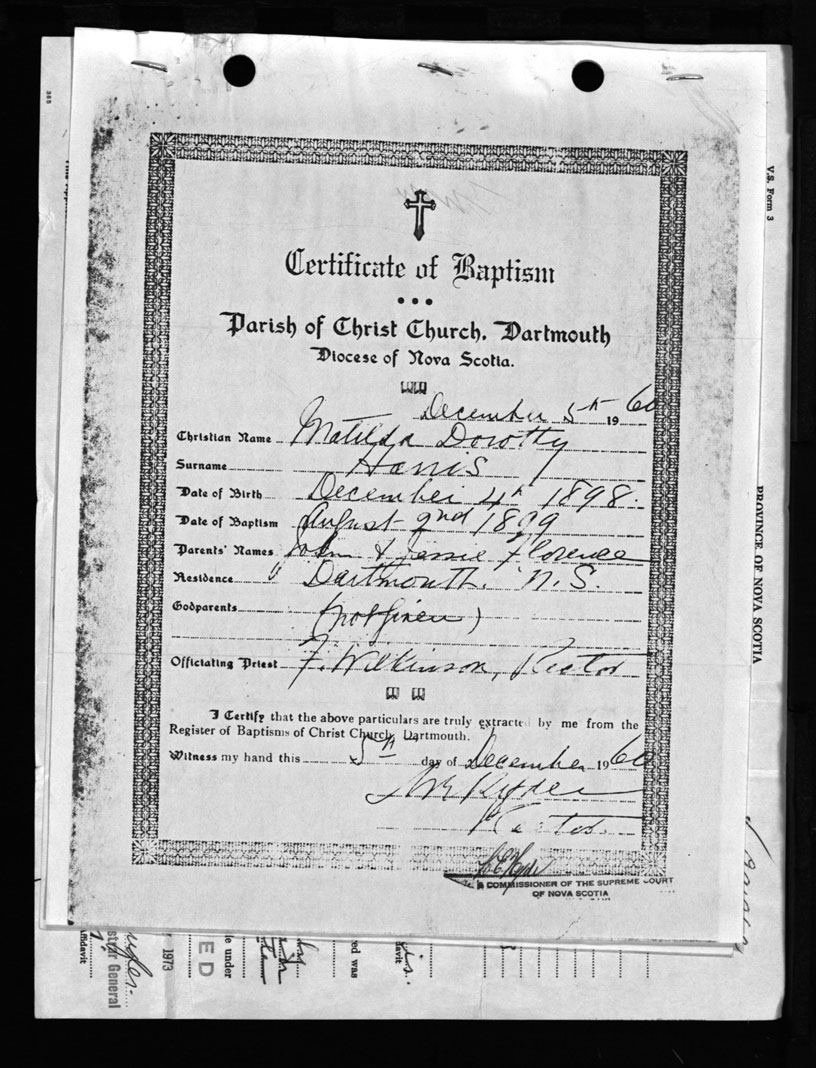 385
V.S. Form 3
PROVINCE OF NOVA SCOTIA
Certificate of Baptism
Parish of Christ Church, Dartmouth
Diocese of Nova Scotia.
December 5th 1960
Christian Name Matilda Dorothy
Surname Harris
Date of Birth December 4th 1898.
Date of Baptism August 2nd 1899
Parents' Names John & Jessie Florence
Residence " Dartmouth, N.S.
Godparents (not given)
Officiating Priest F. Wilkinson, Rector
I Certify that the above particulars are truly extracted by me from the
Register of Baptisms of Christ Church, Dartmouth.
Witness my hand this 5th day of December 1960
Rector.
A COMMISSIONER OF THE SUPREME COURT
OF NOVA SCOTIA
strar General
ffidavit
1973
ED
le under
ed was
davit